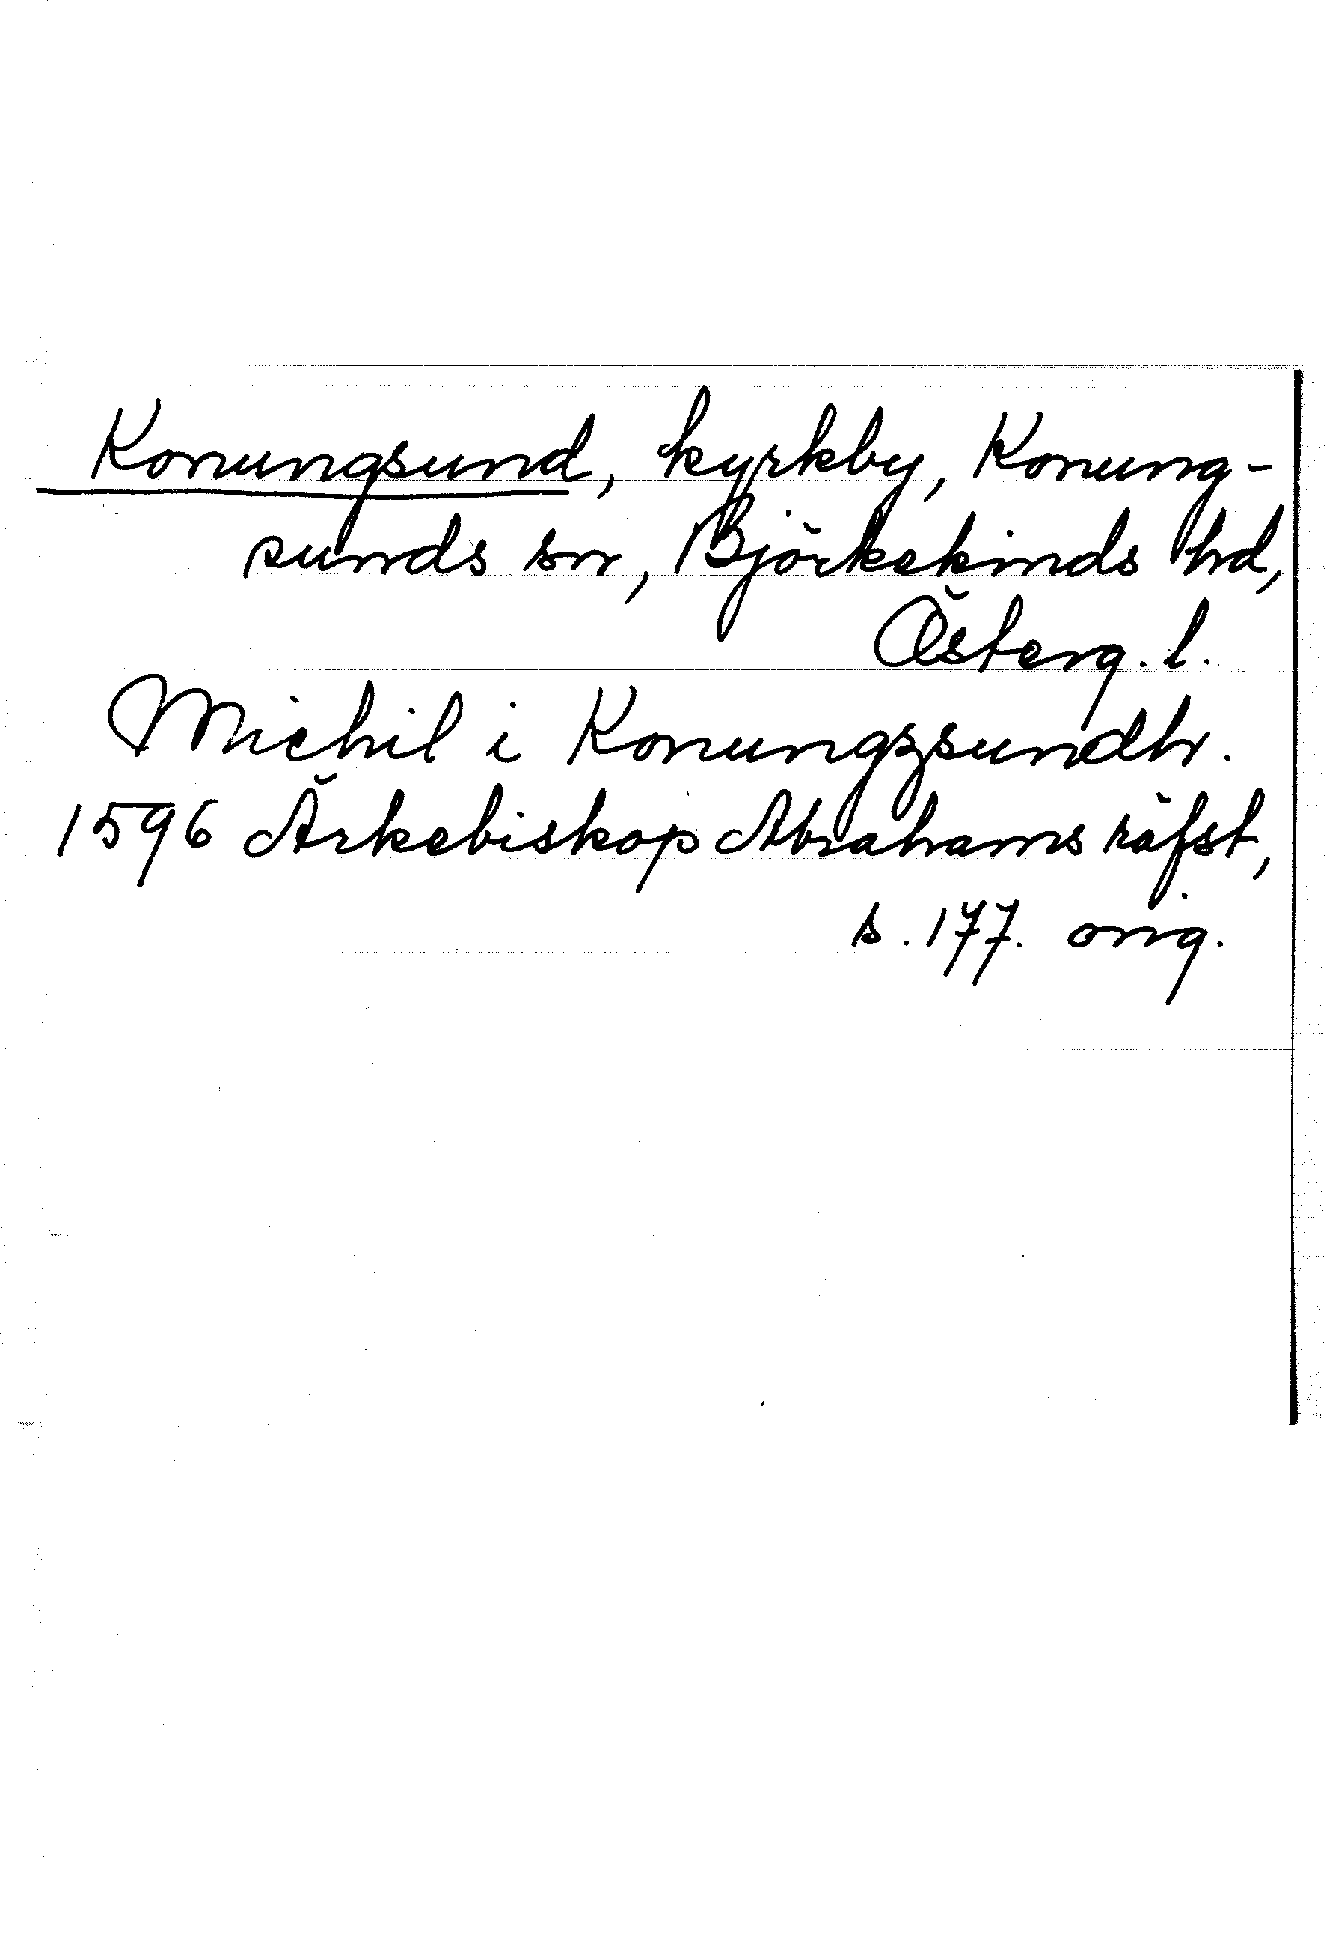 Konungsund, kyrkby, Konung-
sunds sn, Björkekinds hd,
Österg. l.
Michil i Konungzsundh.
1596 Ärkebiskop Abrahams räfst,
s. 177. orig.